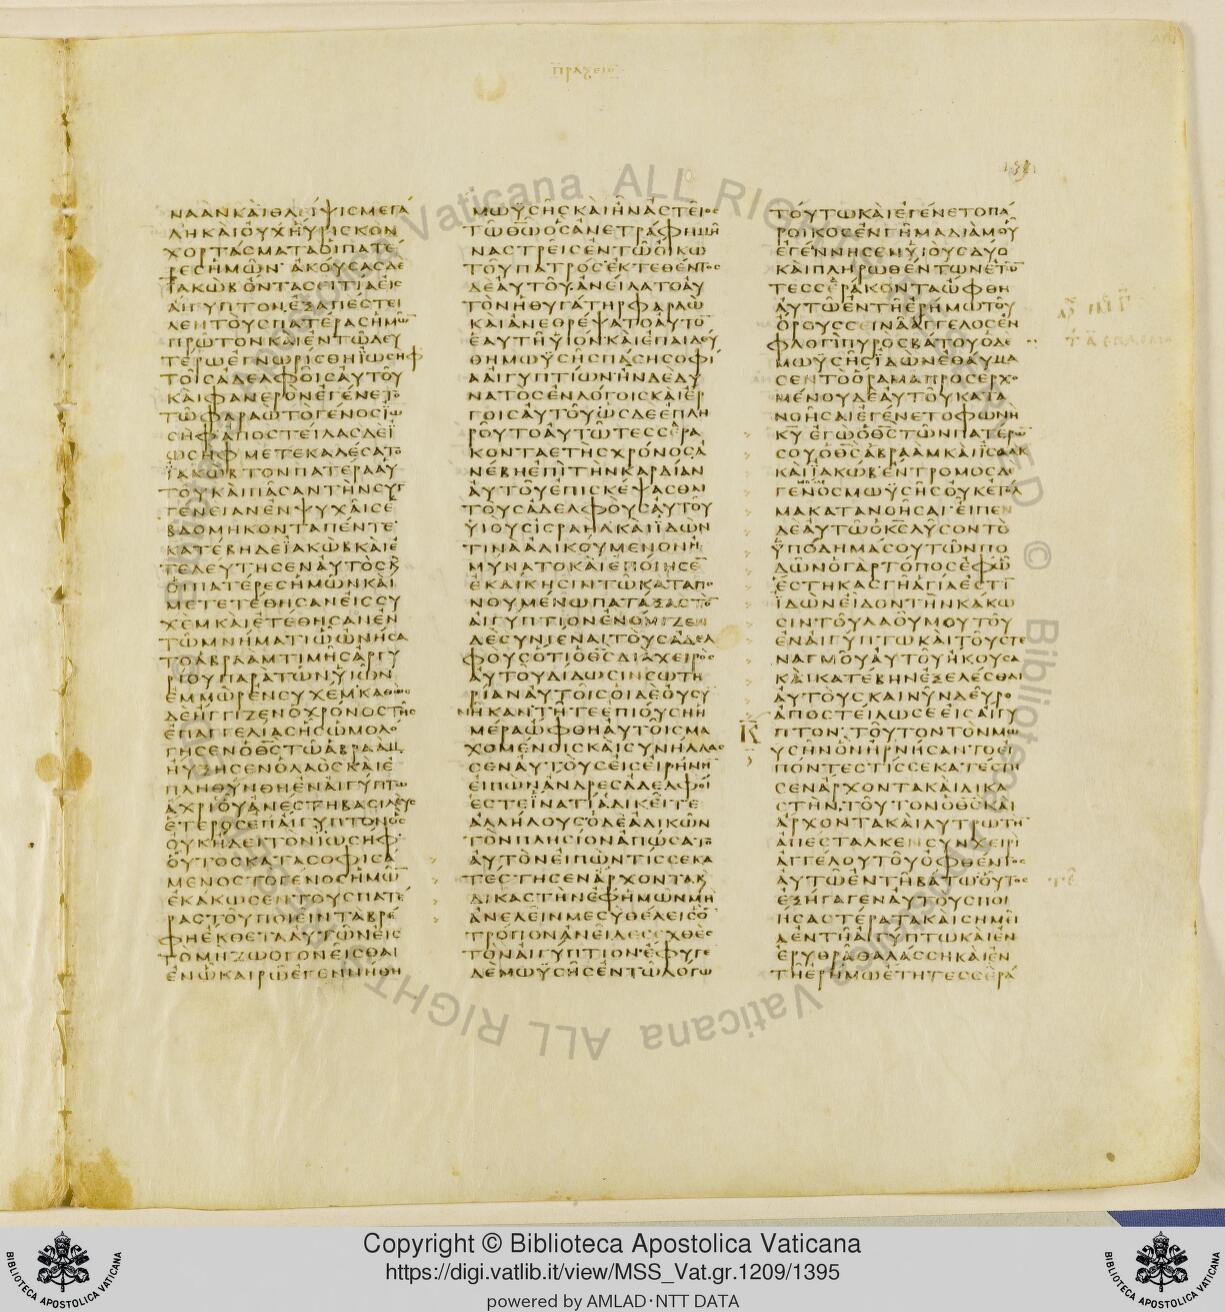 πραξεισ
ΝΑΑΝΚΑΙΘΛΕΙΨΙCΜΕΓΑ
ΛΗΚΑΙΟΥΧΗΥΡΙCΚΟΝ
ΧΟΡΤΑCΜΑΤΑΟΙΠΑΤΕ
ΡΕCΗΜΩΝ ΑΚΟΥCΑCΔΕ
ΙΑΚΩΒΟΝΤΑCΕΙΤΙΑΕΙC
ΑΙΓΥΠΤΟΝΕΞΑΠΕCΤΕΙ
ΛΕΝΤΟΥCΠΑΤΕΡΑCΗΜΩ̅
ΠΡΩΤΟΝΚΑΙΕΝΤΩΔΕΥ
ΤΕΡΩΕΓΝΩΡΙCΘΗΪΩCΗΦ
ΤΟΙCΑΔΕΛΦΟΙCΑΥΤΟΥ
ΚΑΙΦΑΝΕΡΟΝΕΓΕΝΕΤΟ
ΤΩΦΑΡΑΩΤΟΓΕΝΟCΪΩ
CΗΦΑΠΟCΤΕΙΛΑCΔΕΪ
ΩCΗΦΜΕΤΕΚΑΛΕCΑΤΟ
ΪΑΚΩΒΤΟΝΠΑΤΕΡΑΑΥ
ΤΟΥΚΑΙΠΑCΑΝΤΗΝCΥΓ
ΓΕΝΕΙΑΝΕΝΨΥΧΑΙCΕ
ΒΔΟΜΗΚΟΝΤΑΠΕΝΤΕ
ΚΑΤΕΒΗΔΕΪΑΚΩΒΚΑΙΕ
ΤΕΛΕΥΤΗCΕΝΑΥΤΟCΚ
ΟΙΠΑΤΕΡΕCΗΜΩΝΚΑΙ
ΜΕΤΕΤΕΘΗCΑΝΕΙCCΥ
ΧΕΜΚΑΙΕΤΕΘΗCΑΝΕΝ
ΤΩΜΝΗΜΑΤΙΩΩΝΗCΑ
ΤΟΑΒΡΑΑΜΤΙΜΗCΑΡΓΥ
ΡΙΟΥΠΑΡΑΤΩΝΥΙΩΝ
ΕΜΜΩΡΕΝCΥΧΕΜΚΑΘΩC
ΔΕΗΓΓΙΖΕΝΟΧΡΟΝΟCΤΗC
ΕΠΑΓΓΕΛΙΑCΗCΩΜΟΛΟ
ΓΗCΕΝΟΘ̅C̅ΤΩΑΒΡΑΑΜ
ΗΥΞΗCΕΝΟΛΑΟCΚΑΙΕ
ΠΛΗΘΥΝΘΗΕΝΑΙΓΥΠΤΩ
ΑΧΡΙΟΥΑΝΕCΤΗΒΑCΙΛΕΥC
ΕΤΕΡΟCΕΠΑΙΓΥΠΤΟΝΟC
ΟΥΚΗΔΕΙΤΟΝΙΩCΗΦ
ΟΥΤΟCΚΑΤΑCΟΦΙCΑ
ΜΕΝΟCΤΟΓΕΝΟCΗΜΩ̅
ΕΚΑΚΩCΕΝΤΟΥCΠΑΤΕ
ΡΑCΤΟΥΠΟΙΕΙΝΤΑΒΡΕ
ΦΗΕΚΘΕΤΑΑΥΤΩΝΕΙC
ΤΟΜΗΖΩΟΓΟΝΕΙCΘΑΙ
ΕΝΩΚΑΙΡΩΕΓΕΝΝΗΘΗ
ΜΩΫCΗCΚΑΙΗΝΑCΤΕΙΟC
ΤΩΘΩΟCΑΝΕΤΡΑΦΗΜΗ
ΝΑCΤΡΕΙCΕΝΤΩΟΙΚΩ
ΤΟΥΠΑΤΡΟCΕΚΤΕΘΕΝΤΟC
ΔΕΑΥΤΟΥΑΝΕΙΛΑΤΟΑΥ
ΤΟΝΗΘΥΓΑΤΗΡΦΑΡΑΩ
ΚΑΙΑΝΕΘΡΕΨΑΤΟΑΥΤΟ̅
ΕΑΥΤΗΥΪΟΝΚΑΙΕΠΑΙΔΕΥ
ΘΗΜΩΫCΗCΠΑCΗCΟΦΙ
ΑΑΙΓΥΠΤΙΩΝΗΝΔΕΔΥ
ΝΑΤΟCΕΝΛΟΓΟΙCΚΑΙΕΡ
ΓΟΙCΑΥΤΟΥΩCΔΕΕΠΛΗ
ΡΟΥΤΟΑΥΤΩΤΕCCΕΡΑ
ΚΟΝΤΑΕΤΗCΧΡΟΝΟCΑ
ΝΕΒΗΕΠΙΤΗΝΚΑΡΔΙΑΝ
ΑΥΤΟΥΕΠΙCΚΕΨΑCΘΑΙ
ΤΟΥCΑΔΕΛΦΟΥCΑΥΤΟΥ
ΥΙΟΥCΙCΡΑΗΛΚΑΙΪΔΩΝ
ΤΙΝΑΑΔΙΚΟΥΜΕΝΟΝΗ
ΜΥΝΑΤΟΚΑΙΕΠΟΙΗCΕ̅
ΕΚΔΙΚΗCΙΝΤΩΚΑΤΑΠΟ
ΝΟΥΜΕΝΩΠΑΤΑΞΑCΤΟ̅
ΑΙΓΥΠΤΙΟΝΕΝΟΜΙΖΕΝ
ΔΕCΥΝΙΕΝΑΙΤΟΥCΑΔΕΛ
ΦΟΥCΟΤΙΟΘ̅C̅ΔΙΑΧΕΙΡΟC
ΑΥΤΟΥΔΙΔΩCΙΝCΩΤΗ
ΡΙΑΝΑΥΤΟΙCΟΙΔΕΟΥCΥ
ΝΗΚΑΝΤΗΤΕΕΠΙΟΥCΗΗ
ΜΕΡΑΩΦΘΗΑΥΤΟΙCΜΑ
ΧΟΜΕΝΟΙCΚΑΙCΥΝΗΛΛΑC
CΕΝΑΥΤΟΥCΕΙCΕΙΡΗΝΗ̅
ΕΙΠΩΝΑΝΔΡΕCΑΔΕΛΦΟΙ
ΕCΤΕΪΝΑΤΙΑΔΙΚΕΙΤΕ
ΑΛΛΗΛΟΥCΟΔΕΑΔΙΚΩΝ
ΤΟΝΠΛΗCΙΟΝΑΠΩCΑΤΟ
ΑΥΤΟΝΕΙΠΩΝΤΙCCΕΚΑ
ΤΕCΤΗCΕΝΑΡΧΟΝΤΑΚ
ΔΙΚΑCΤΗΝΕΦΗΜΩΝΜΗ
ΑΝΕΛΕΙΝΜΕCΥΘΕΛΕΙCΟ̅
ΤΡΟΠΟΝΑΝΕΙΛΕCΕΧΘΕC
ΤΟΝΑΙΓΥΠΤΙΟΝΕΦΥΓΕ
ΔΕΜΩΫCΗCΕΝΤΩΛΟΓΩ
ΤΟΥΤΩΚΑΙΕΓΕΝΕΤΟΠΑ
ΡΟΙΚΟCΕΝΓΗΜΑΔΙΑΜΟΥ
ΕΓΕΝΝΗCΕΝΥΪΟΥCΔΥΟ
ΚΑΙΠΛΗΡΩΘΕΝΤΩΝΕΤΩ̅
ΤΕCCΕΡΑΚΟΝΤΑΩΦΘΗ
ΑΥΤΩΕΝΤΗΕΡΗΜΩΤΟΥ
ΟΡΟΥCCΕΙΝΑΑΓΓΕΛΟCΕΝ
ΦΛΟΓΙΠΥΡΟCΒΑΤΟΥΟΔΕ
ΜΩΫCΗCΪΔΩΝΕΘΑΥΜΑ
CΕΝΤΟΟΡΑΜΑΠΡΟCΕΡΧΟ
ΜΕΝΟΥΔΕΑΥΤΟΥΚΑΤΑ
ΝΟΗCΑΙΕΓΕΝΕΤΟΦΩΝΗ
Κ̅Υ̅ΕΓΩΟΘ̅C̅ΤΩΝΠΑΤΕΡΩ̅
CΟΥΟΘ̅C̅ΑΒΡΑΑΜΚΑΙΙCΑΑΚ
ΚΑΙΪΑΚΩΒΕΝΤΡΟΜΟCΔΕ
ΓΕΝΟCΜΩΫCΗCΟΥΚΕΤΟΛ
ΜΑΚΑΤΑΝΟΗCΑΙΕΙΠΕΝ
ΔΕΑΥΤΩΟΚ̅C̅ΛΥCΟΝΤΟ
ΫΠΟΔΗΜΑCΟΥΤΩΝΠΟ
ΔΩΝΟΓΑΡΤΟΠΟCΕΦΩ
ΕCΤΗΚΑCΓΗΑΓΙΑΕCΤΙ
ΪΔΩΝΕΙΔΟΝΤΗΝΚΑΚΩ
CΙΝΤΟΥΛΑΟΥΜΟΥΤΟΥ
ΕΝΑΙΓΥΠΤΩΚΑΙΤΟΥCΤΕ
ΝΑΓΜΟΥΑΥΤΟΥΗΚΟΥCΑ
ΚΑΙΚΑΤΕΒΗΝΕΞΕΛΕCΘΑΙ
ΑΥΤΟΥCΚΑΙΝΥΝΔΕΥΡΟ
ΑΠΟCΤΕΙΛΩCΕΕΙCΑΙΓΥ
ΠΤΟΝΤΟΥΤΟΝΤΟΝΜΩ
ΥCΗΝΟΝΗΡΝΗCΑΝΤΟΕΙ
ΠΟΝΤΕCΤΙCCΕΚΑΤΕCΤΗ
CΕΝΑΡΧΟΝΤΑΚΑΙΔΙΚΑ
CΤΗΝΤΟΥΤΟΝΟΘ̅C̅ΚΑΙ
ΑΡΧΟΝΤΑΚΑΙΛΥΤΡΩΤΗ̅
ΑΠΕCΤΑΛΚΕΝCΥΝΧΕΙΡΙ
ΑΓΓΕΛΟΥΤΟΥΟΦΘΕΝΤΟC
ΑΥΤΩΕΝΤΗΒΑΤΩΟΥΤΟC
ΕΞΗΓΑΓΕΝΑΥΤΟΥCΠΟΙ
ΗCΑCΤΕΡΑΤΑΚΑΙCΗΜΕΙ
ΑΕΝΤΗΑΙΓΥΠΤΩΚΑΙΕΝ
ΕΡΥΘΡΑΘΑΛΑCCΗΚΑΙΕΝ
ΤΗΕΡΗΜΩΕΤΗΤΕCCΕΡΑ
Copyright © Biblioteca Apostolica Vaticana
https://digi.vatlib.it/view/MSS_Vat.gr.1209/1395
powered by AMLAD·NTT DATA